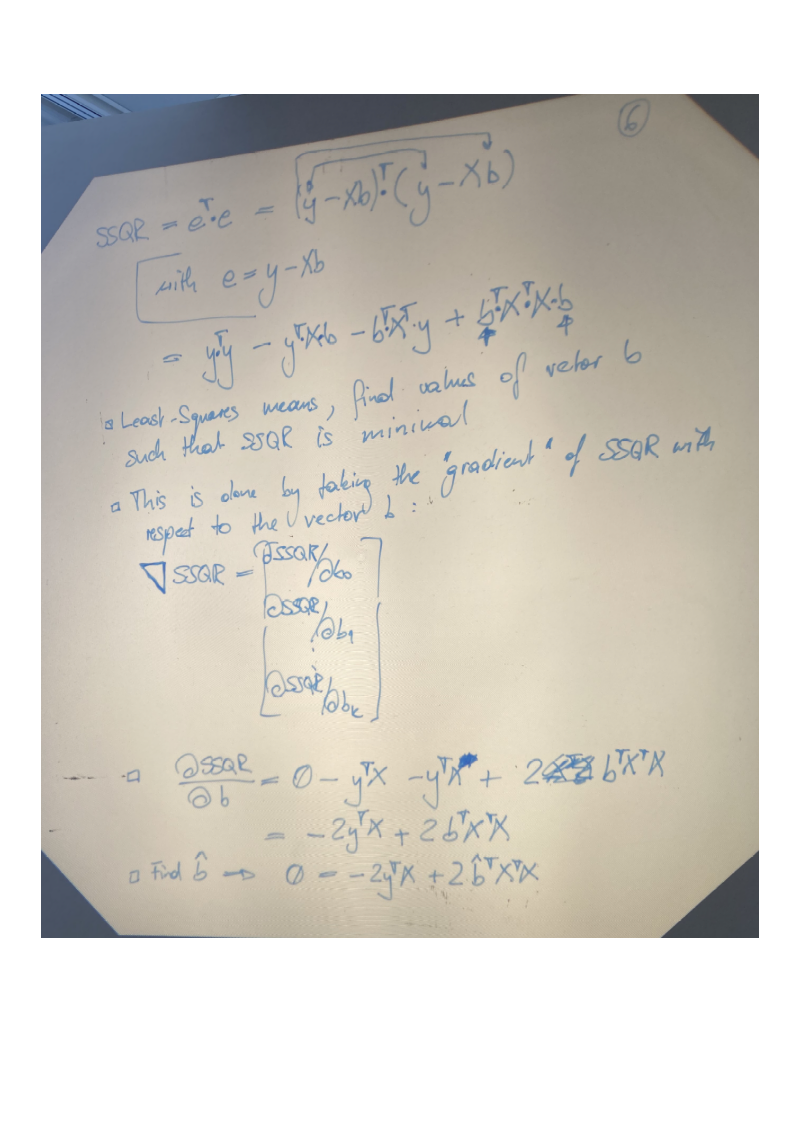 6
SSQR = eᵀ·e = (y - Xb)ᵀ·(y - Xb)
with e = y - Xb
= yᵀ·y - yᵀ·X·b - bᵀ·Xᵀ·y + bᵀ·Xᵀ·X·b
Least-Squares means, find values of vector b
such that SSQR is minimal
This is done by taking the "gradient" of SSQR with
respect to the vector b :
∇ SSQR = [∂SSQR/∂b₀
∂SSQR/∂b₁
⋮
∂SSQR/∂bₖ]
∂SSQR/∂b = 0 - yᵀX - yᵀX + 2 bᵀXᵀX
= -2yᵀX + 2bᵀXᵀX
Find b̂ → 0 = -2yᵀX + 2b̂ᵀXᵀX